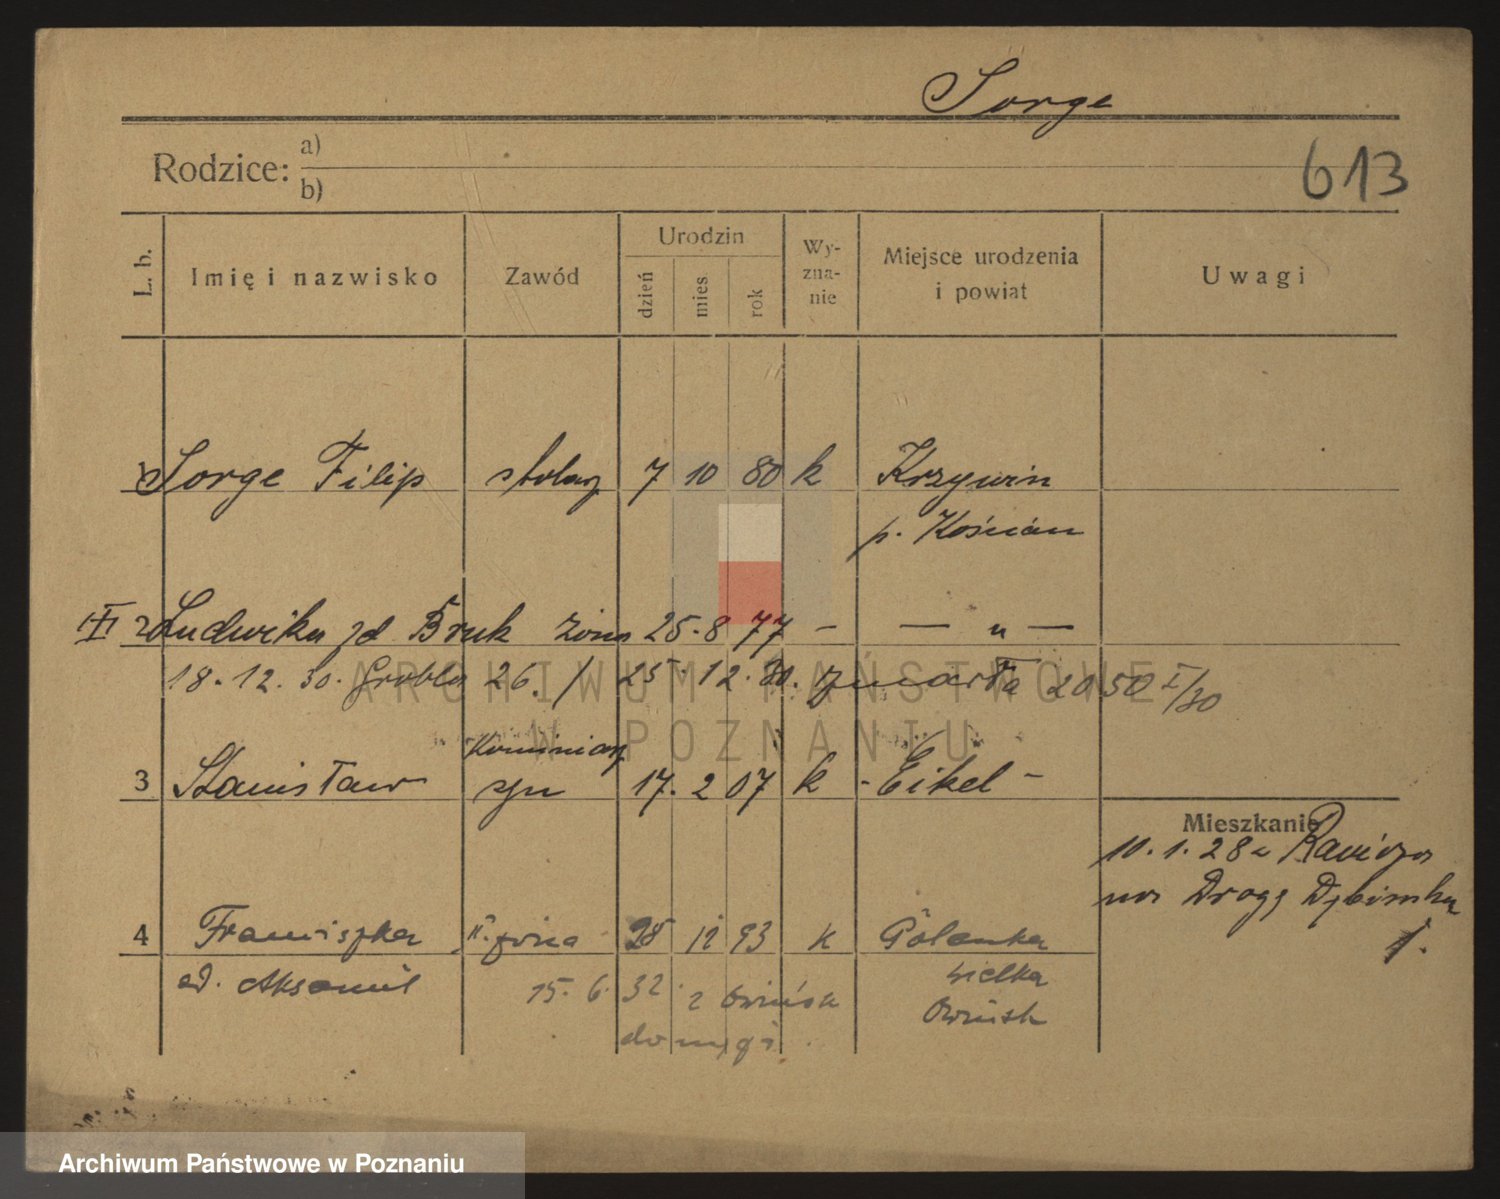 Sorge
Rodzice: a)
b)
613
L. b.
Imię i nazwisko
Zawód
Urodzin
dzień
mies
rok
Wy-
zna-
nie
Miejsce urodzenia
i powiat
Uwagi
1 Sorge Filip stolarz 7 10 80 k Krzywin
p. Kościan
2 Ludwika zd Bruk żona 25. 8 77 — — " —
18. 12. 30. Grobla 26. / 25. 12. 30. zmarła 2050 I/30
ARCHIWUM PAŃSTWOWE
W POZNANIU
Kominiarz
3 Stanisław syn 17. 2 07 k - Eikel -
Mieszkanie
10. 1. 28 z Rawicza
na Drogę Dębińską
1.
4 Franciszka II. żona 28 12 93 k Golenka
zd. Aksamit 15. 6. 32. z Owińsk wielka
Owińsk
do męża
Archiwum Państwowe w Poznaniu